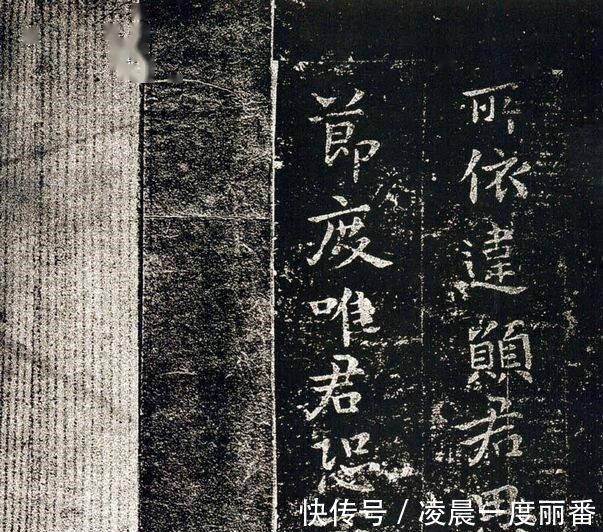 所依違願君
節度唯君
快传号 / 凌晨一度丽番